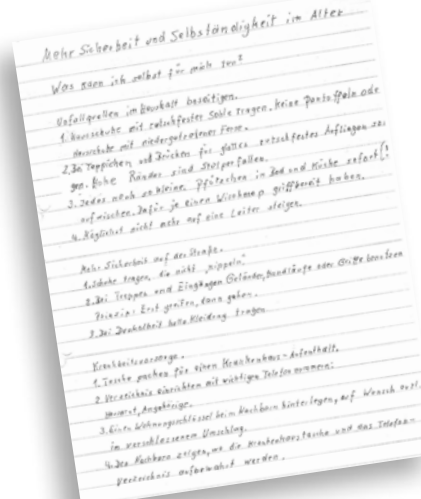 Mehr Sicherheit und Selbständigkeit im Alter
Was kann ich selbst für mich tun?
Unfallquellen im Haushalt beseitigen.
1. Hausschuhe mit rutschfester Sohle tragen. Keine Pantoffeln ode
Hausschuhe mit niedergetretener Ferse.
2. Bei Teppichen und Brücken für glattes rutschfestes Aufliegen so
gen. Hohe Ränder sind Stolperfallen.
3. Jedes noch so kleine Pfützchen in Bad und Küche sofort
aufwischen. Dafür je einen Wischmop griffbereit haben.
4. Möglichst nicht mehr auf eine Leiter steigen.
Mehr Sicherheit auf der Straße.
1. Schuhe tragen, die nicht „kippeln"
2. Bei Treppen und Eingängen Geländer, Handläufe oder Griffe benutzen
Prinzip: Erst greifen, dann gehen.
3. Bei Dunkelheit helle Kleidung tragen
Krankheitsvorsorge.
1. Tasche packen für einen Krankenhaus-Aufenthalt.
2. Verzeichnis einrichten mit wichtigen Telefonnummern:
Angehörige.
3. Einen Wohnungsschlüssel beim Nachbarn hinterlegen, auf Wunsch
im verschlossenem Umschlag.
4. Den Nachbarn zeigen, wo die Krankenhaustasche und das Telefon-
verzeichnis aufbewahrt werden.